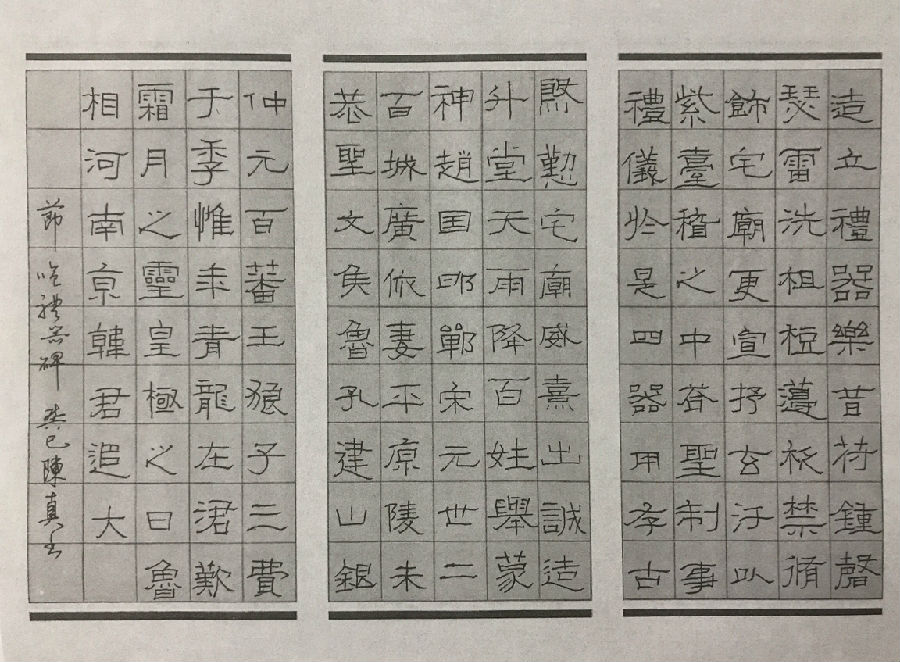 造立禮器樂昔苻鍾磬
瑟雷洗柤梪籩柉禁脩
飾宅廟更宣抒玄汙以
紫臺稽之中荅聖制事
禮儀於是四器用孝古
懃宅廟威熹出誠造
升堂天雨降百姓舉蒙
神趙国邯鄲宋元世二
百城廣依妻平原陵朱
恭聖文侯魯孔建山鉏
仲元百蕃王狼子二費
于季惟年青龍在涒歎
霜月之靈皇極之日魯
相河南京韓君追大
節臨禮器碑 癸巳陳真